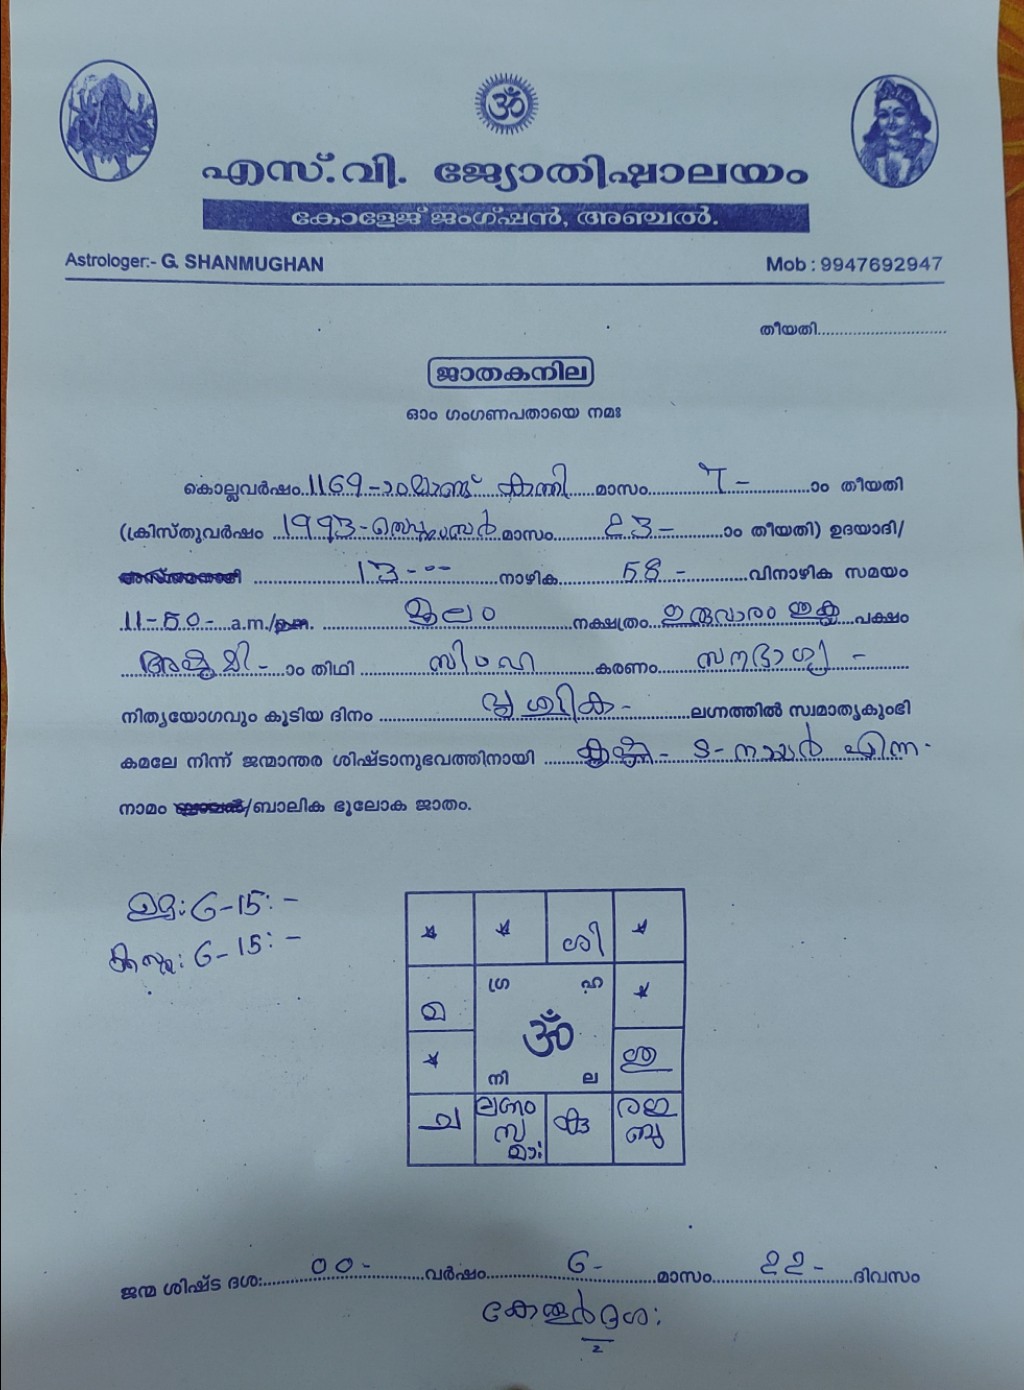 ॐ
എസ്.വി. ജ്യോതിഷാലയം
കോളേജ് ജംഗ്ഷൻ, അഞ്ചൽ.
Astrologer:- G. SHANMUGHAN
Mob : 9947692947
തീയതി............................
ജാതകനില
ഓം ഗംഗണപതായെ നമഃ
കൊല്ലവർഷം 1169-ാമാണ്ട് കന്നി മാസം 7- ാം തീയതി
(ക്രിസ്തുവർഷം 1993-സെപ്റ്റംബർ മാസം 23- ാം തീയതി) ഉദയാദി/
13 നാഴിക 58- വിനാഴിക സമയം
11-50- a.m./ മൂലം നക്ഷത്രം പക്ഷം
അഷ്ടമി- ാം തിഥി സിംഹ കരണം
നിത്യയോഗവും കൂടിയ ദിനം വൃശ്ചിക- ലഗ്നത്തിൽ സ്വമാതൃകുംഭി
കമലേ നിന്ന് ജന്മാന്തര ശിഷ്ടാനുഭവത്തിനായി കൃഷ്ണ- S- നായർ എന്ന-
നാമം /ബാലിക ഭൂലോക ജാതം.
ഉദ: 6-15:-
അസ്ത: 6-15:-
ശി
ഗ്ര ഹ
മ
ॐ
നി ല
ച
കു
ജന്മ ശിഷ്ട ദശ: 00- വർഷം 6- മാസം 22- ദിവസം
കേതുർദശ:
2